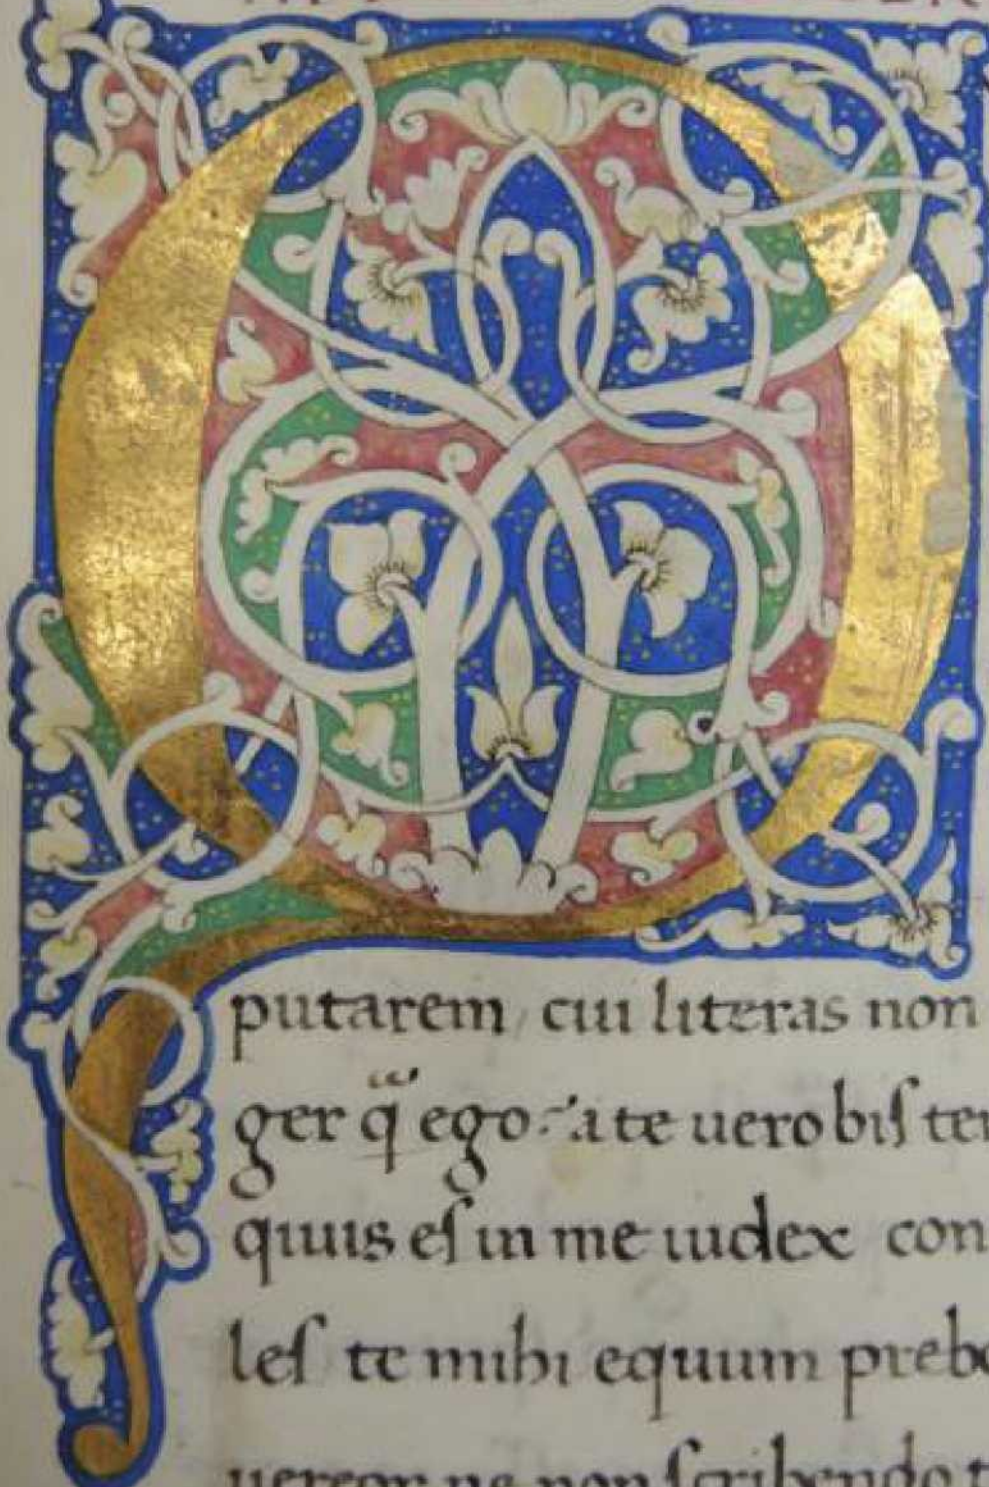 Q
putarem cui literas non
ger q̃ ego: a te uero bis ter
quiuis es in me iudex con
les te mihi equum prebe
uereor ne non scribendo t